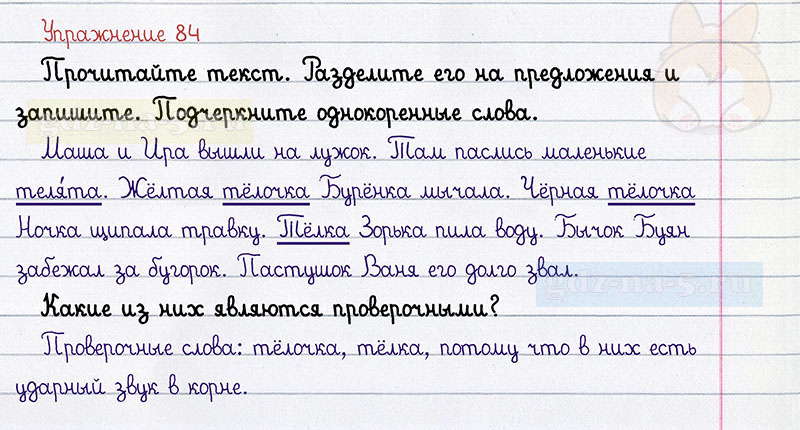 Упражнение 84
Прочитайте текст. Разделите его на предложения и
запишите. Подчеркните однокоренные слова.
Маша и Ира вышли на лужок. Там паслись маленькие
теля́та. Жёлтая тёлочка Бурёнка мычала. Чёрная тёлочка
Ночка щипала травку. Тёлка Зорька пила воду. Бычок Буян
забежал за бугорок. Пастушок Ваня его долго звал.
gdz-na-5.ru
Какие из них являются проверочными?
Проверочные слова: тёлочка, тёлка, потому что в них есть
ударный звук в корне.